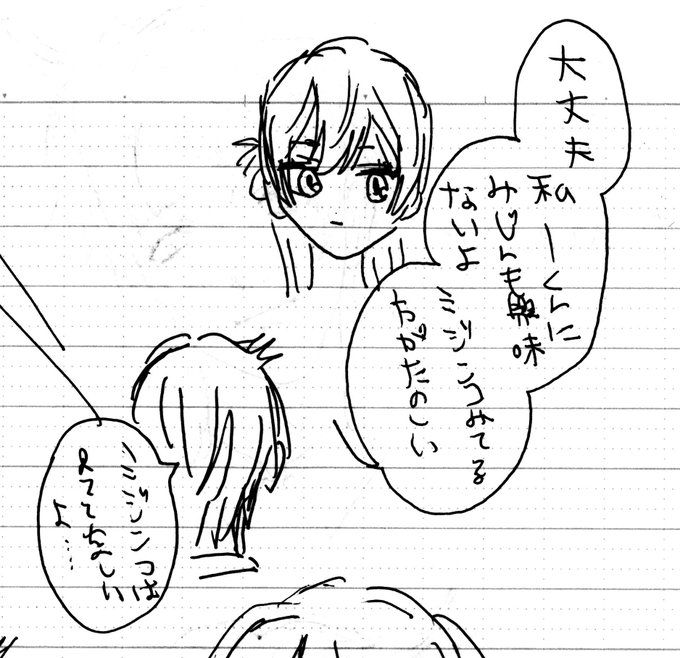 大丈夫
私 ーくんに
みじんも興味
ないよ
ミジンコみてる
方がたのしい
ミジンコは
みててたのしい
よ……